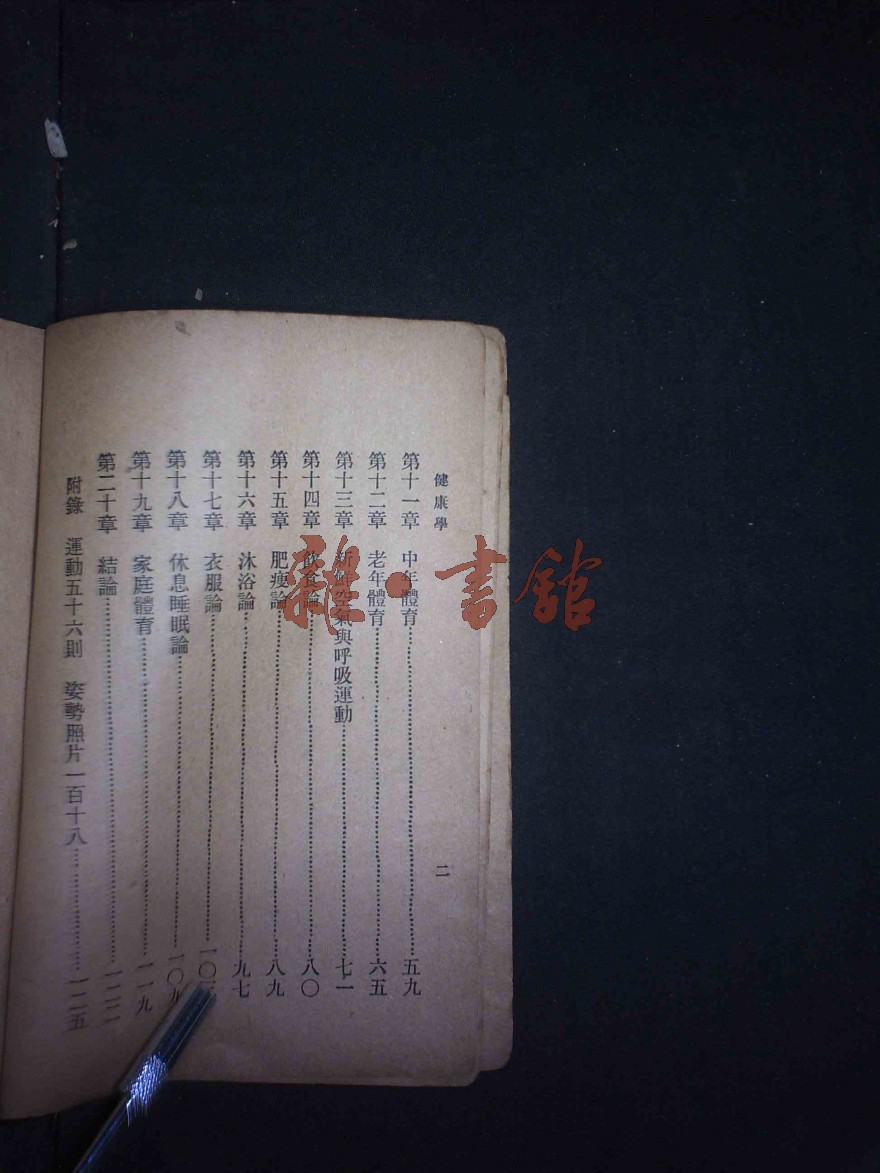 健康學
二
第十一章 中年體育……五九
第十二章 老年體育……六五
第十三章 新鮮空氣與呼吸運動……七一
第十四章 飲食論……八〇
第十五章 肥瘦論……八九
第十六章 沐浴論……九七
第十七章 衣服論……一〇
第十八章 休息睡眠論……一〇九
第十九章 家庭體育……一一九
第二十章 結論……一二二
附錄 運動五十六則 姿勢照片一百十八……一二五
雜·書館